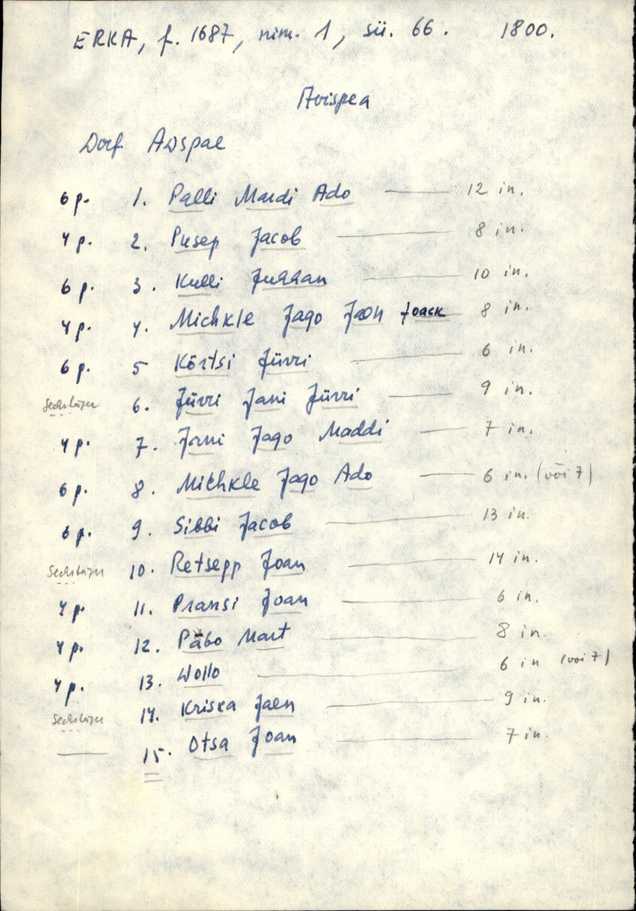 ERKA, f. 1687, nim. 1, sü. 66. 1800.
Avispea
Dorf Awspae
6 p. 1. Palli Mardi Ado 12 in.
4 p. 2. Pusep Jacob 8 in.
6 p. 3. Kulli Juhhan 10 in.
4 p. 4. Michkle Jago Jaon Joack 8 in.
6 p. 5 Körtsi Jürri 6 in.
Sechstäger 6. Jürri Jani Jürri 9 in.
4 p. 7. Jani Jago Maddi 7 in.
6 p. 8. Michkle Jago Ado 6 in. (või 7)
6 p. 9. Sibbi Jacob 13 in.
Sechstäger 10. Retsepp Joan 14 in.
4 p. 11. Pransi Joan 6 in.
4 p. 12. Päbo Mart 8 in.
4 p. 13. Wollo 6 in (või 7)
Sechstäger 14. Kriska Jaen 9 in.
15. Otsa Joan 7 in.